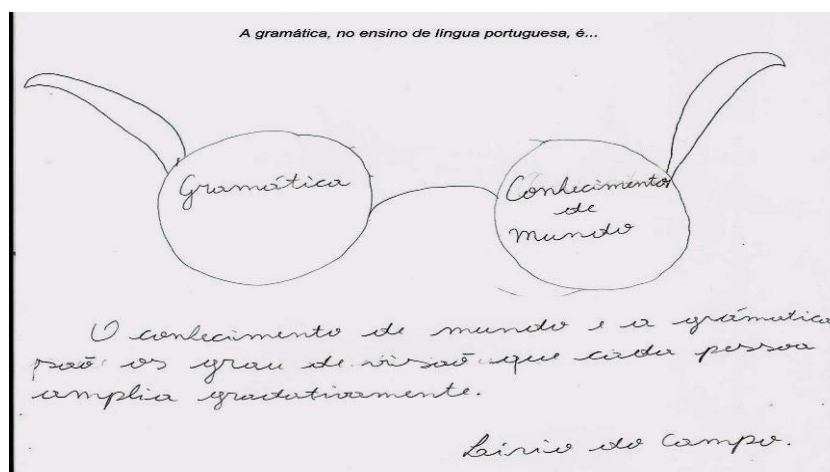 A gramática, no ensino de língua portuguesa, é...
Gramática
Conhecimento
de
mundo
O conhecimento de mundo e a grámatica
saõ os grau de visaõ que cada pessoa
amplia gradativamente.
Lírio do campo.